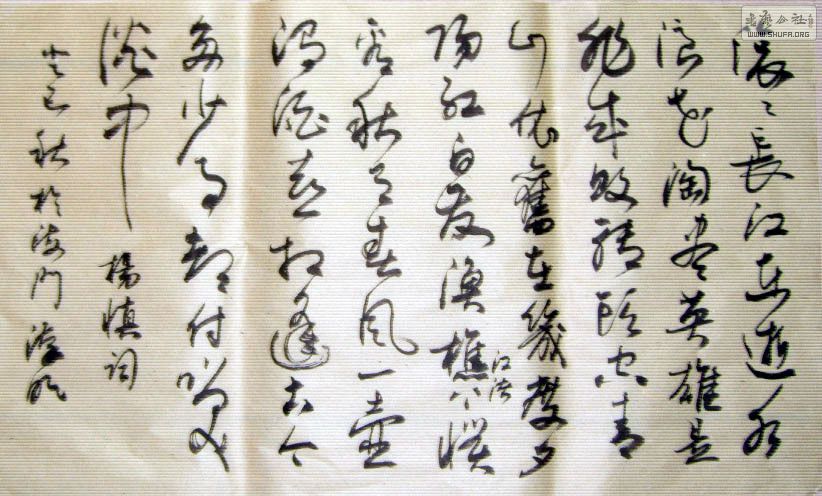 书法公社
WWW.SHUFA.ORG
滚滚長江东逝水
浪花淘尽英雄是
非成败转头空青
山依舊在幾度夕
阳红白发渔樵江渚上惯
看秋月春风一壶
浊酒喜相逢古今
多少事都付咲
谈中
楊慎词
巳秋於海門